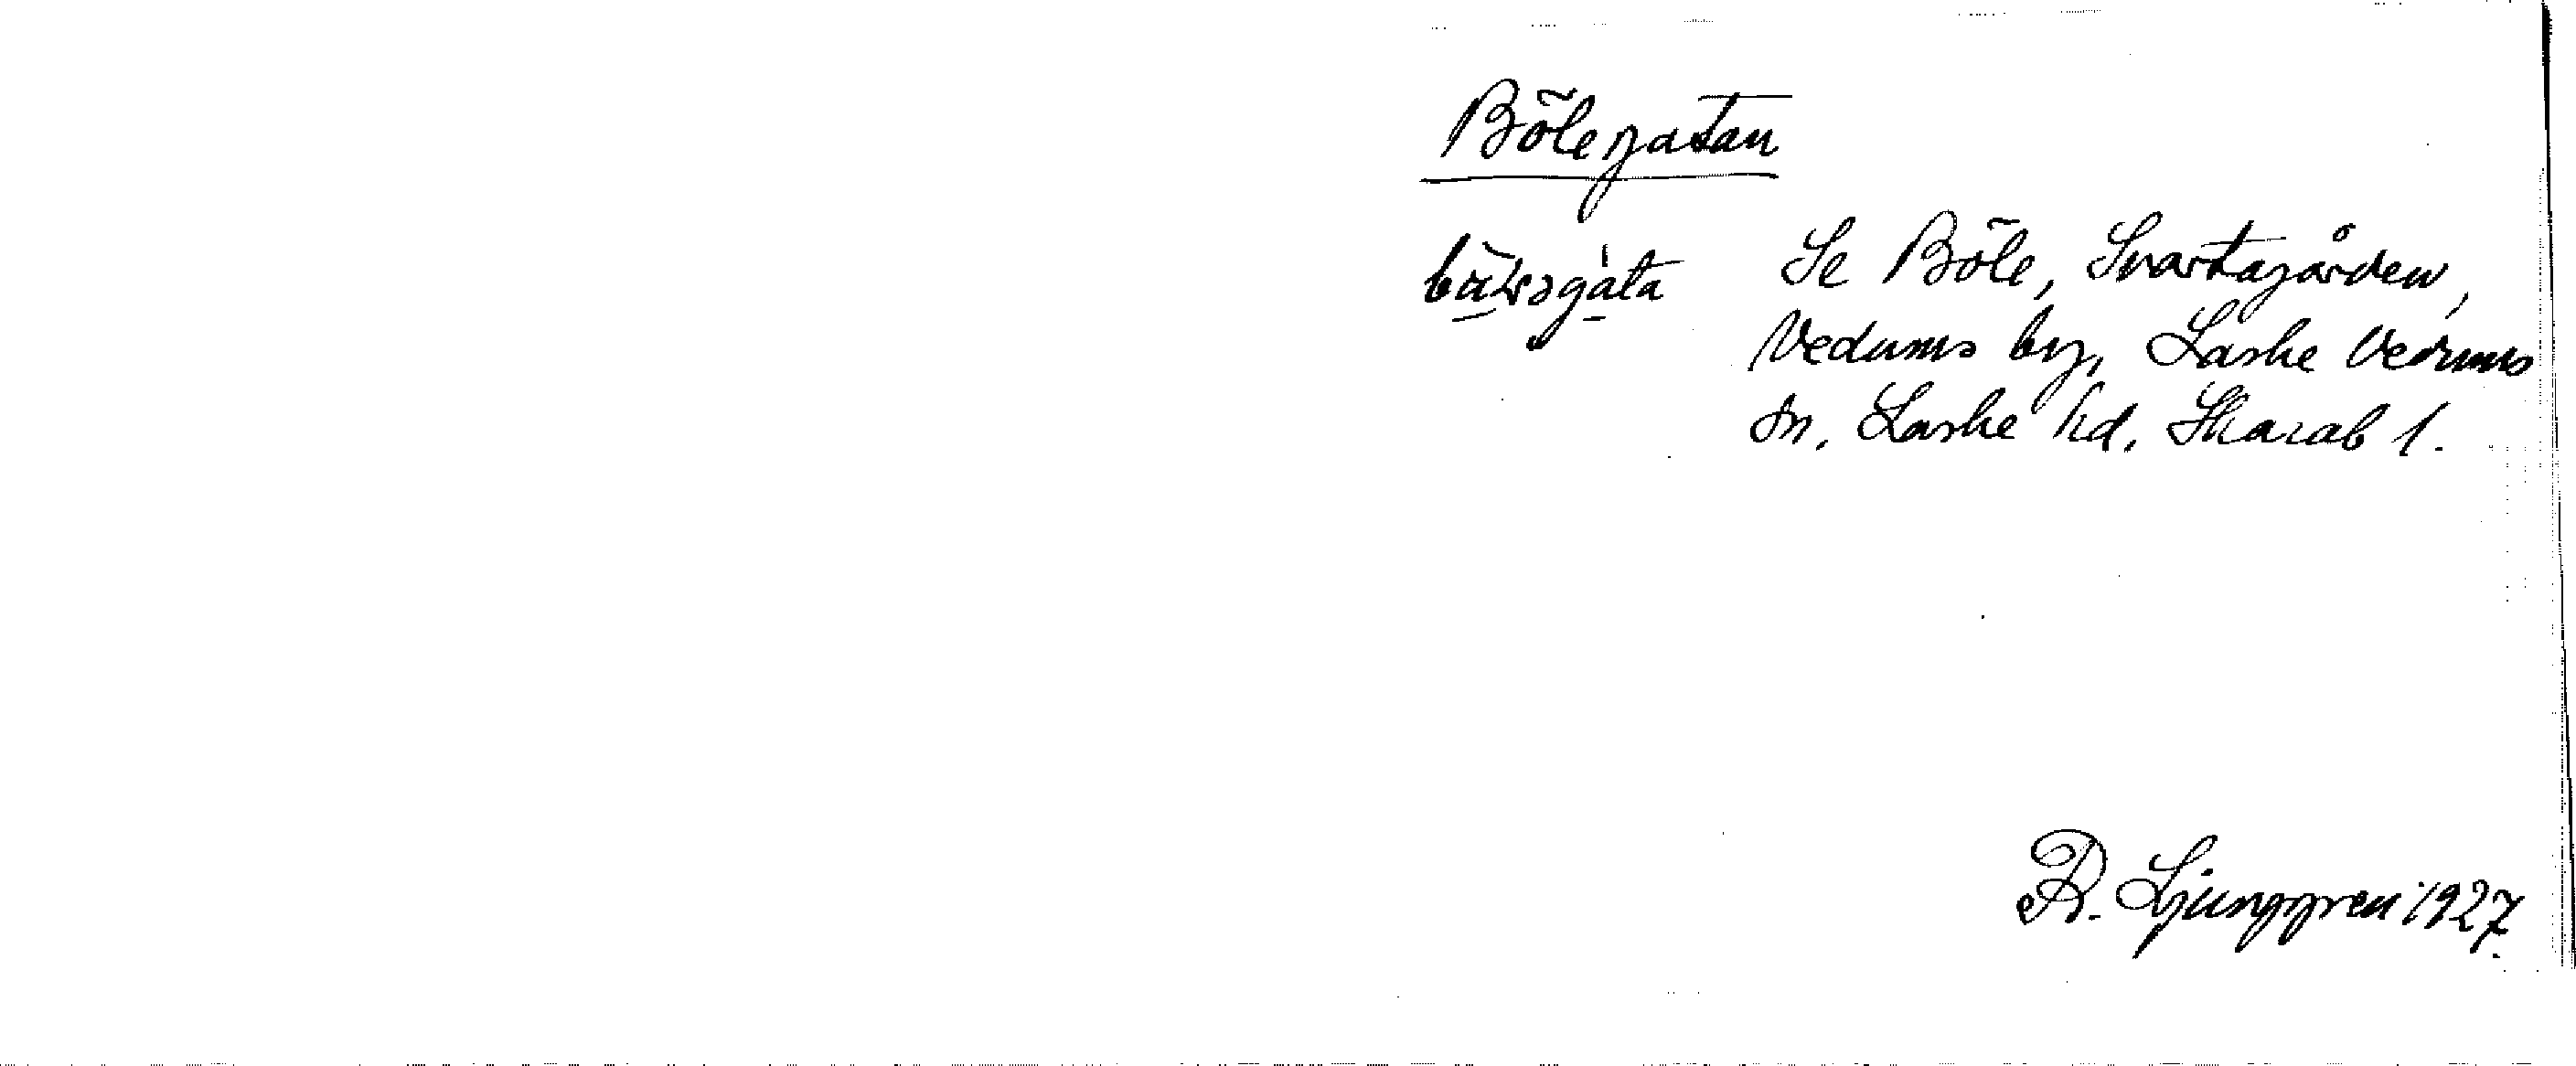 Bölegatan
Se Böle, Svartagården,
Vedums by, Laske Vedums
sn, Laske hd. Skarab l.
R. Ljunggren 1927.